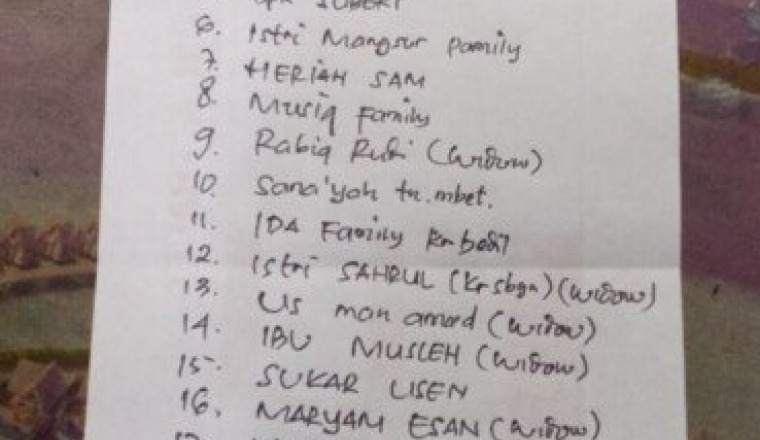 SUBERI
6. Istri Mansur Family
7. HERIAH SAM
8. Musiq Family
9. Rabiq Rubi (widow)
10. Sana'yah tn. mbet.
11. IDA Family
12. Istri SAHRUL (Kr sbgn) (widow)
13. Us man amad (widow)
14. IBU MUSLEH (widow)
15. SUKAR LISEN
16. MARYAM ESAN (widow)
17.